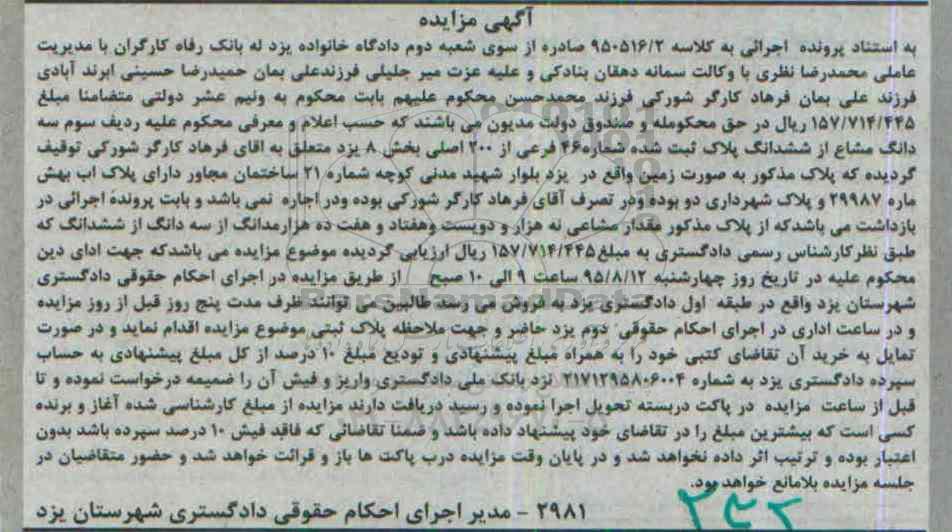 آگهی مزایده
به استناد پرونده اجرائی به کلاسه ۹۵۰۵۱۶/۲ صادره از سوی شعبه دوم دادگاه خانواده یزد له بانک رفاه کارگران با مدیریت
عاملی محمدرضا نظری با وکالت سمانه دهقان بنادکی و علیه عزت میر جلیلی فرزندعلی بمان حمیدرضا حسینی ابرند آبادی
فرزند علی بمان فرهاد کارگر شورکی فرزند محمدحسن محکوم علیهم بابت محکوم به ونیم عشر دولتی متضامنا مبلغ
۱۵۷/۷۱۴/۴۴۵ ریال در حق محکومله و صندوق دولت مدیون می باشند که حسب اعلام و معرفی محکوم علیه ردیف سوم سه
دانگ مشاع از ششدانگ پلاک ثبت شده شماره۴۶ فرعی از ۲۰۰ اصلی بخش ۸ یزد متعلق به اقای فرهاد کارگر شورکی توقیف
گردیده که پلاک مذکور به صورت زمین واقع در یزد بلوار شهید مدنی کوچه شماره ۲۱ ساختمان مجاور دارای پلاک اب بهش
ماره ۲۹۹۸۷ و پلاک شهرداری دو بوده ودر تصرف آقای فرهاد کارگر شورکی بوده ودر اجاره نمی باشد و بابت پرونده اجرائی در
بازداشت می باشدکه از پلاک مذکور مقدار مشاعی نه هزار و دویست وهفتاد و هفت ده هزارمدانگ از سه دانگ از ششدانگ که
طبق نظرکارشناس رسمی دادگستری به مبلغ۱۵۷/۷۱۴/۴۴۵ ریال ارزیابی گردیده موضوع مزایده می باشدکه جهت ادای دین
محکوم علیه در تاریخ روز چهارشنبه ۹۵/۸/۱۲ ساعت ۹ الی ۱۰ صبح از طریق مزایده در اجرای احکام حقوقی دادگستری
شهرستان یزد واقع در طبقه اول دادگستری یزد به فروش می رسد طالبین می توانند ظرف مدت پنج روز قبل از روز مزایده
و در ساعت اداری در اجرای احکام حقوقی دوم یزد حاضر و جهت ملاحظه پلاک ثبتی موضوع مزایده اقدام نماید و در صورت
تمایل به خرید آن تقاضای کتبی خود را به همراه مبلغ پیشنهادی و تودیع مبلغ ۱۰ درصد از کل مبلغ پیشنهادی به حساب
سپرده دادگستری یزد به شماره ۲۱۷۱۲۹۵۸۰۶۰۰۴ نزد بانک ملی دادگستری واریز و فیش آن را ضمیمه درخواست نموده و تا
قبل از ساعت مزایده در پاکت دربسته تحویل اجرا نموده و رسید دریافت دارند مزایده از مبلغ کارشناسی شده آغاز و برنده
کسی است که بیشترین مبلغ را در تقاضای خود پیشنهاد داده باشد و ضمنا تقاضائی که فاقد فیش ۱۰ درصد سپرده باشد بدون
اعتبار بوده و ترتیب اثر داده نخواهد شد و در پایان وقت مزایده درب پاکت ها باز و قرائت خواهد شد و حضور متقاضیان در
جلسه مزایده بلامانع خواهد بود.
۲۹۸۱ - مدیر اجرای احکام حقوقی دادگستری شهرستان یزد
ParsNamadData